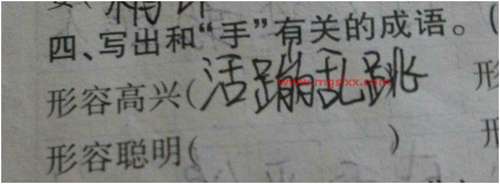 四、写出和“手”有关的成语。(
形容高兴(活蹦乱跳 形
形容聪明( ) 形